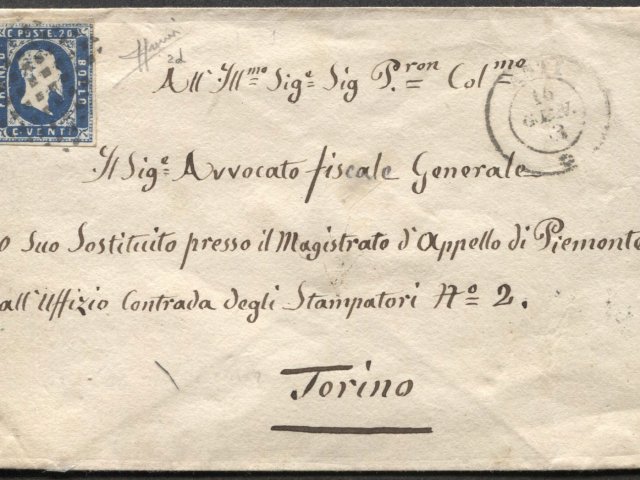 C. POSTE. 20
FRANCO
BOLLO
C. VENTI
All' Illmo Sige Sig Pron Colmo
16
GEN.
Il Sige Avvocato fiscale Generale
o Suo Sostituito presso il Magistrato d'Appello di Piemonte
all' Uffizio Contrada degli Stampatori No 2.
Torino